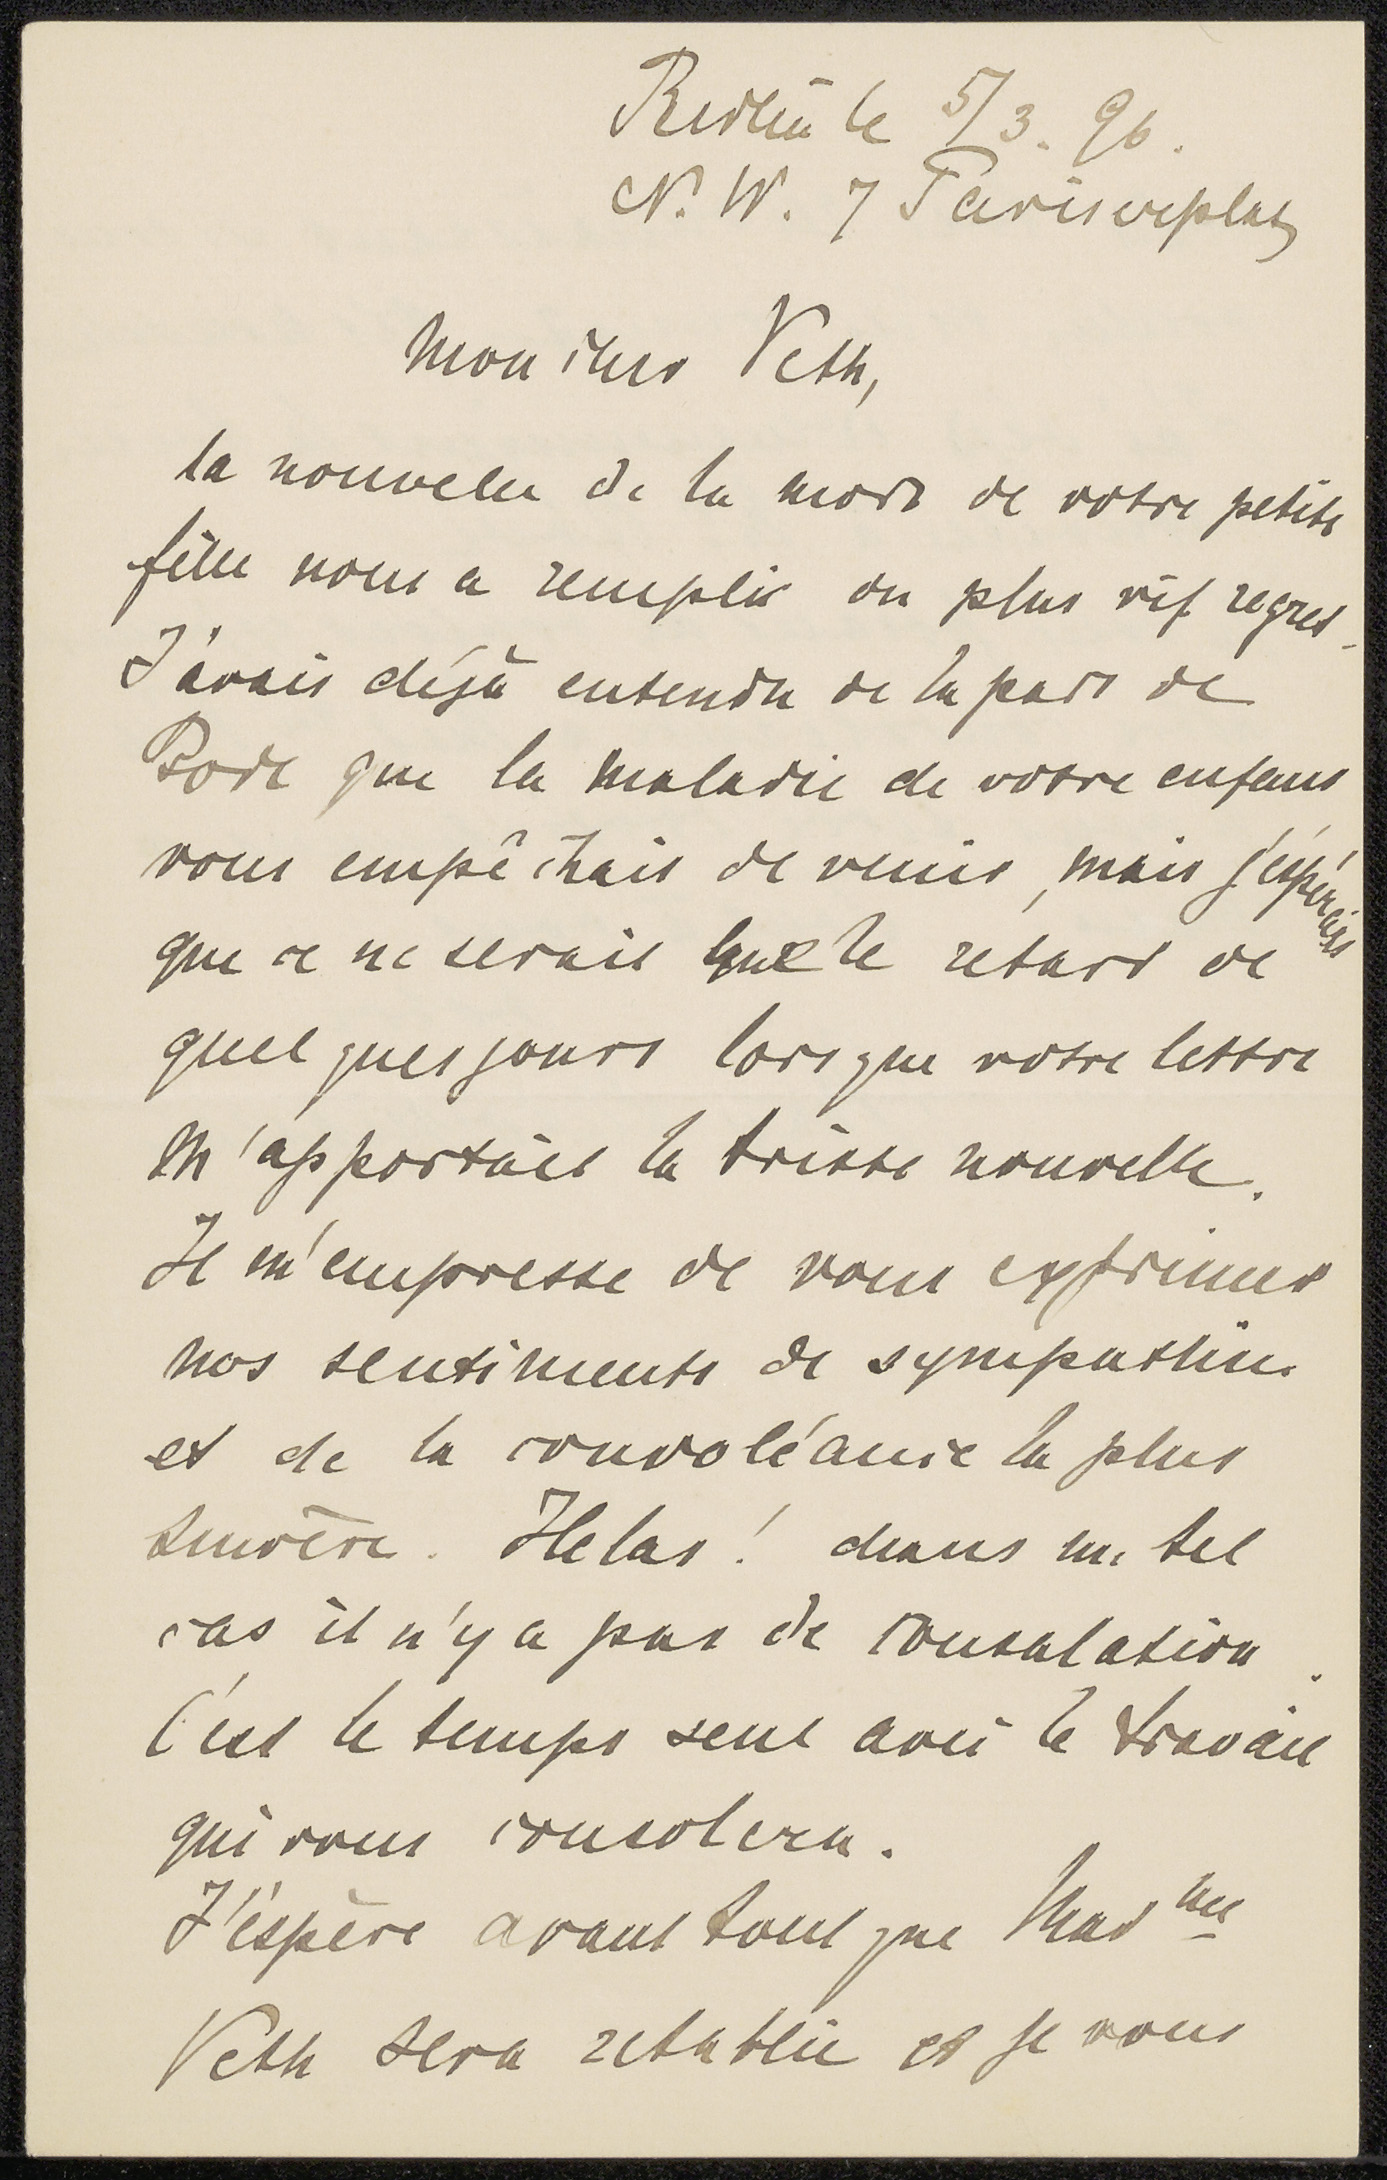 Berlin le 5/3. 96.
N. W. 7 Pariserplatz
Mon cher Veth,
la nouvelle de la mort de votre petite
fille nous a remplis du plus vif regret.
J'avais déjà entendu de la part de
Bode que la maladie de votre enfant
vous empêchait de venir, mais j'espérais
que ce ne serait que le retard de
quelques jours lorsque votre lettre
m'apportait la triste nouvelle.
Je m'empresse de vous exprimer
nos sentiments de sympathie
et de la condoléance la plus
sincère. Helas! dans un tel
cas il n'y a pas de consolation.
C'est le temps seul avec le travail
qui vous consolera.
J'éspère avant tout que Madme
Veth sera retablie et je vous